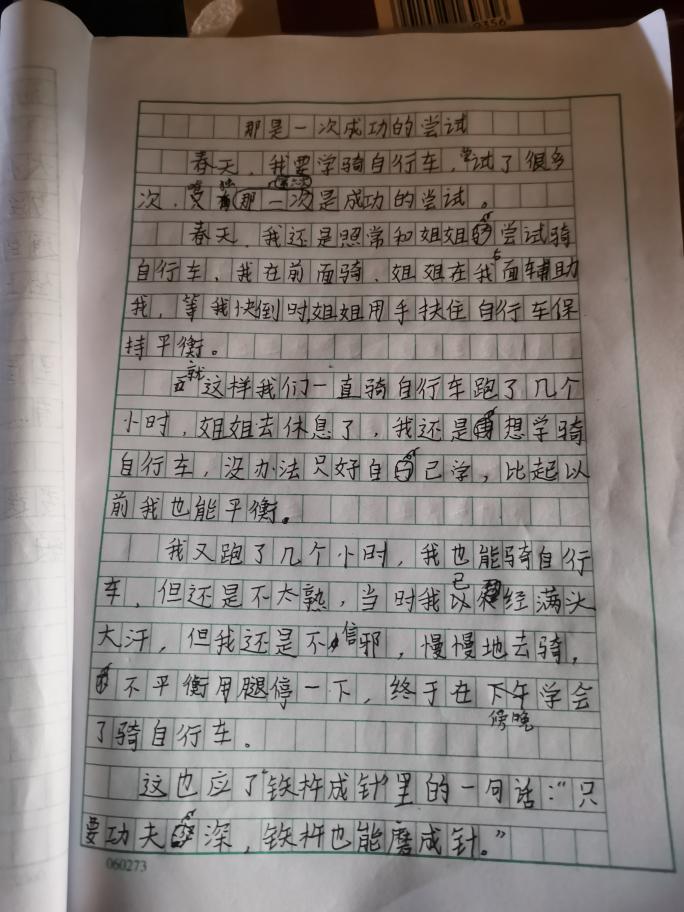 0356
那是一次成功的尝试
春天，我要学骑自行车，尝试了很多
次，唯独那一次是成功的尝试。
春天，我还是照常和姐姐尝试骑
自行车，我在前面骑，姐姐在我后面辅助
我，等我快倒时，姐姐用手扶住自行车保
持平衡。
就这样我们一直骑自行车跑了几个
小时，姐姐去休息了，我还是想学骑
自行车，没办法只好自己学，比起以
前我也能平衡。
我又跑了几个小时，我也能骑自行
车，但还是不太熟，当时我已经满头
大汗，但我还是不信邪，慢慢地去骑，
不平衡用腿停一下，终于在下午傍晚学会
了骑自行车。
这也应了“铁杵成针”里的一句话：“只
要功夫深，铁杵也能磨成针。”
060273